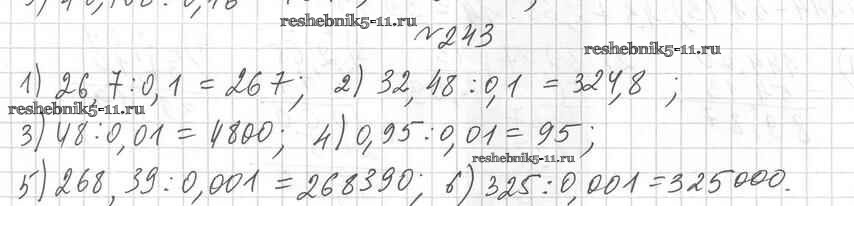 reshebnik5-11.ru
№243
reshebnik5-11.ru
1) 26,7:0,1 = 267; 2) 32,48:0,1 = 324,8 ;
reshebnik5-11.ru
3) 48:0,01 = 4800; 4) 0,95:0,01 = 95;
reshebnik5-11.ru
5) 268,39:0,001 = 268390; 6) 325:0,001 = 325000.